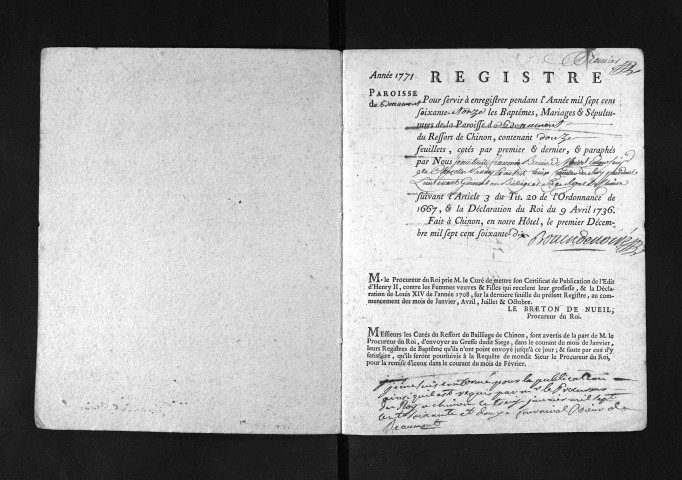 Premier
Année 1771
REGISTRE
PAROISSE
de Beaumont
Pour servir à enregistrer pendant l'Année mil sept cens
soixante et onze les Baptêmes, Mariages & Sépultu-
tures de la Paroisse de Beaumont
du Ressort de Chinon, contenant douze
feuillets, cotés par premier & dernier, & paraphés
par Nous
Lieutenant General au Bailliage et Siege Royal de Chinon
suivant l'Article 3 du Tit. 20 de l'Ordonnance de
1667, & la Déclaration du Roi du 9 Avril 1736.
Fait à Chinon, en notre Hôtel, le premier Décem-
bre mil sept cent soixante dix
M. le Procureur du Roi prie M. le Curé de mettre son Certificat de Publication de l'Edit
d'Henry II, contre les Femmes veuves & Filles qui recelent leur grossesse, & la Décla-
ration de Louis XIV de l'année 1708, sur la derniere feuille du présent Registre, au com-
mencement des mois de Janvier, Avril, Juillet & Octobre.
LE BRETON DE NUEIL,
Procureur du Roi.
MEssieurs les Curés du Ressort du Bailliage de Chinon, sont avertis de la part de M. le
Procureur du Roi, d'envoyer au Greffe dudit Siege, dans le courant du mois de Janvier,
leurs Registres de Baptême qu'ils n'ont point envoyé jusqu'à ce jour; & faute par eux d'y
satisfaire, qu'ils seront poursuivis à la Requête de mondit Sieur le Procureur du Roi,
pour la remise d'iceux dans le courant du mois de Février.
je me suis conformé pour la publication
ainsi qu'il est requis par mr le Procureur
du Roy a chinon ce trois janvier mil sept
cent soixante et douze
Beaumont